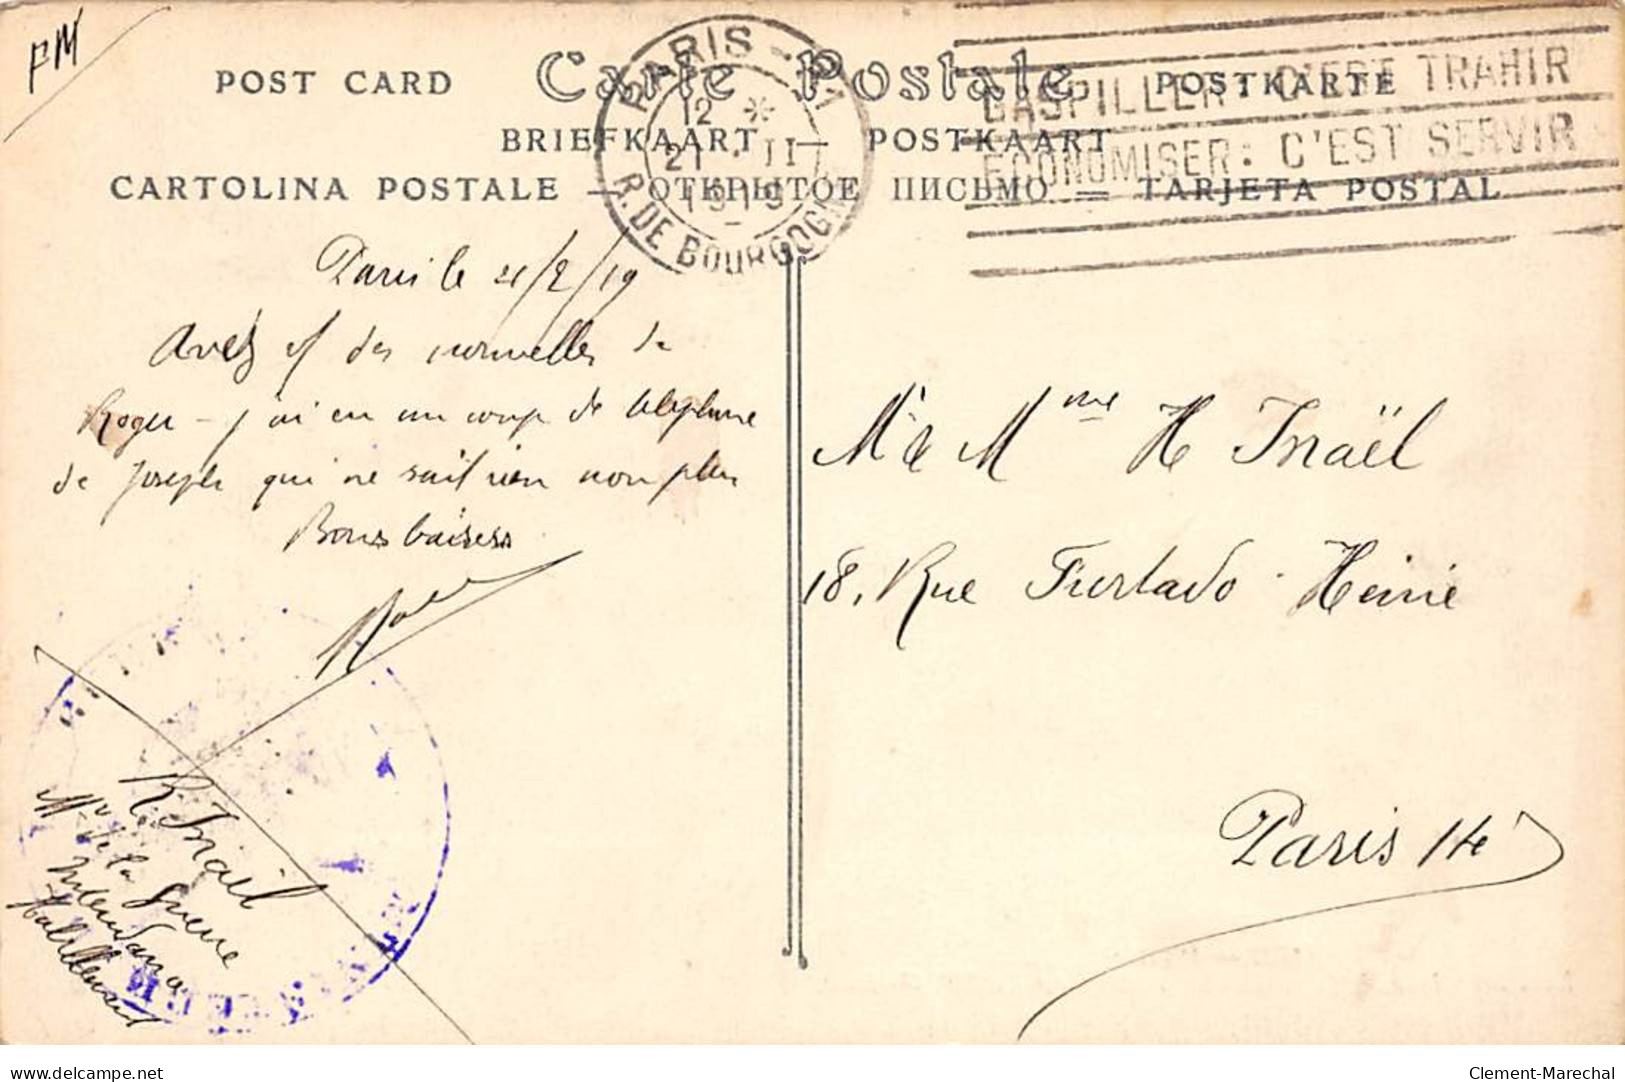 FM
POST CARD Carte Postale POSTKARTE
BRIEFKAART — POSTKAART
CARTOLINA POSTALE — ОТКРЫТОЕ ПИСЬМО — TARJETA POSTAL
PARIS
12 *
21 · II
1919
R. DE BOURGOGNE
GASPILLER: C'EST TRAHIR
ECONOMISER: C'EST SERVIR
Paris le 21/2/19
Avez des nouvelles de
Roger – j'ai eu un coup de telephone
de Joseph qui ne sait rien non plus
Bons baisers
R. Israël
Mre de la Guerre
Intendance
Habillement
Mr & Mme H Israël
18, Rue Furtado-Heine
Paris 14e
delcampe.net
Clement-Marechal